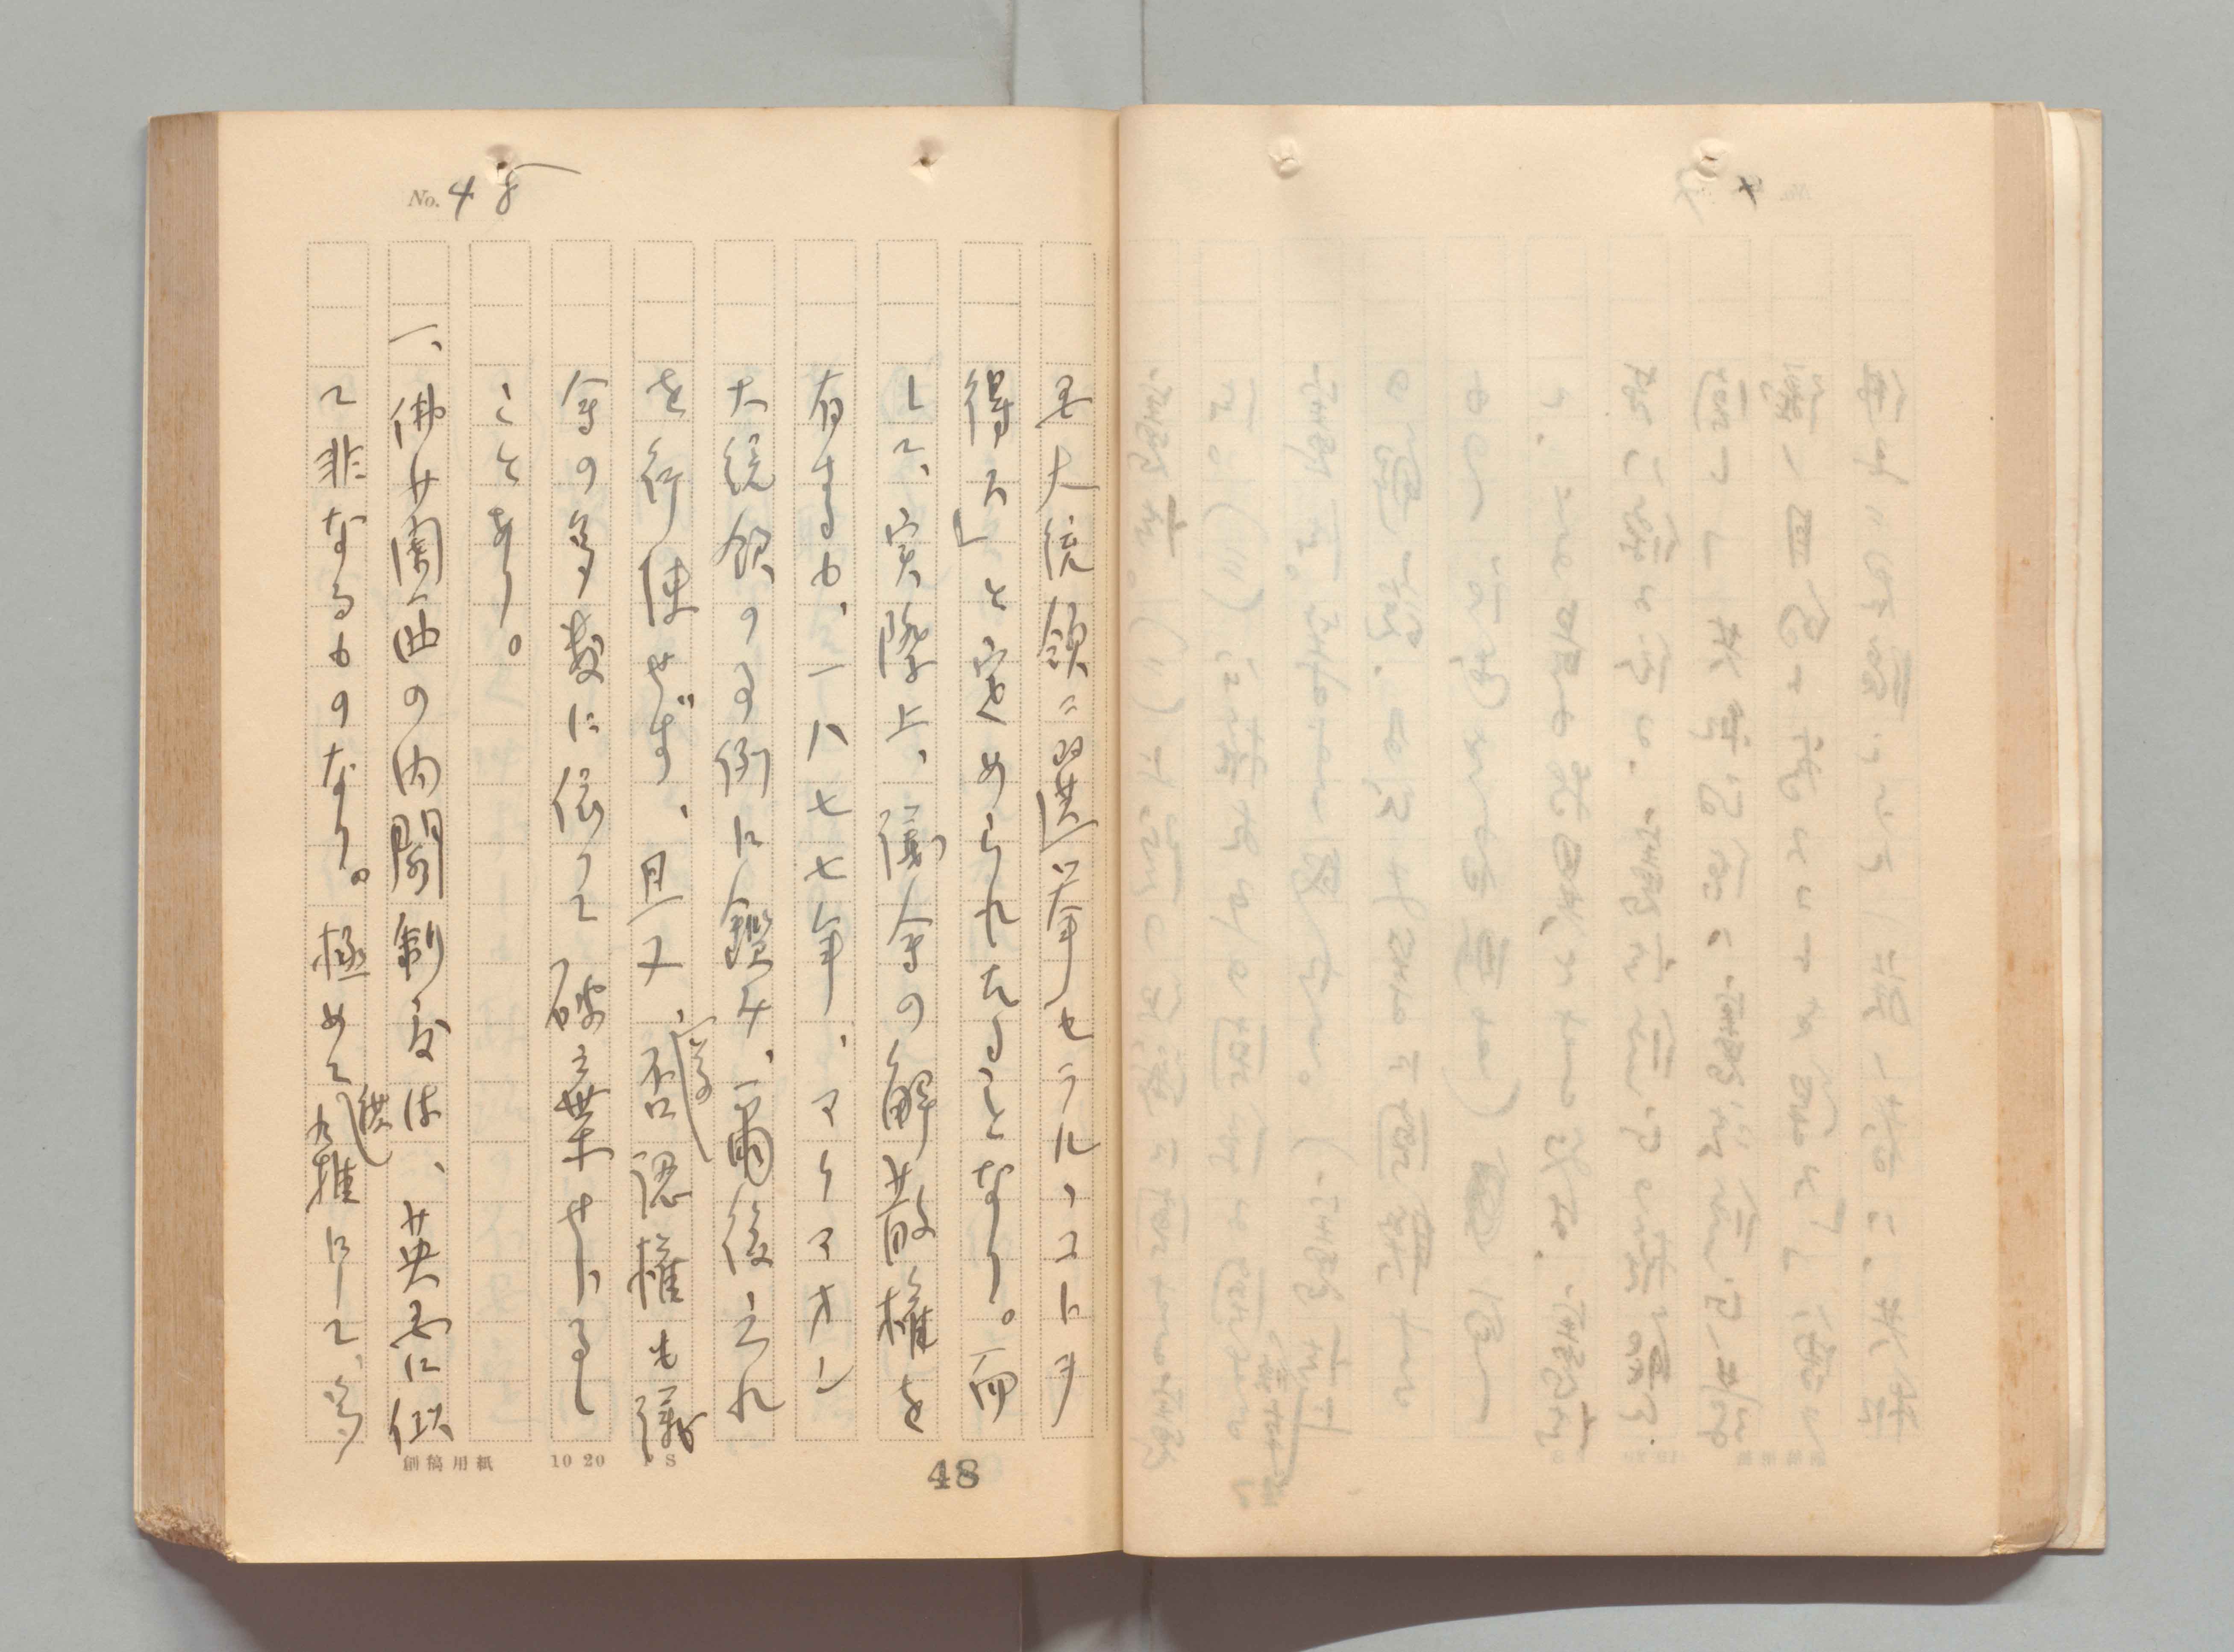 No. 48
大統領ニ選挙セラルヽコトヲ
得ス」と定められたることなり。而
して、実際上、議会の解散権を
有するも、一八七七年、マクマオン
大統領の事例に鑑み、爾後之れ
を行使せず、且又、否認権も議
会の多数に依つて破棄せらるゝ
ことあり。
一、佛蘭西の内閣制度は、英国に似
て非なるものなり。極めて にして、多
創稿用紙 10 20 S
48